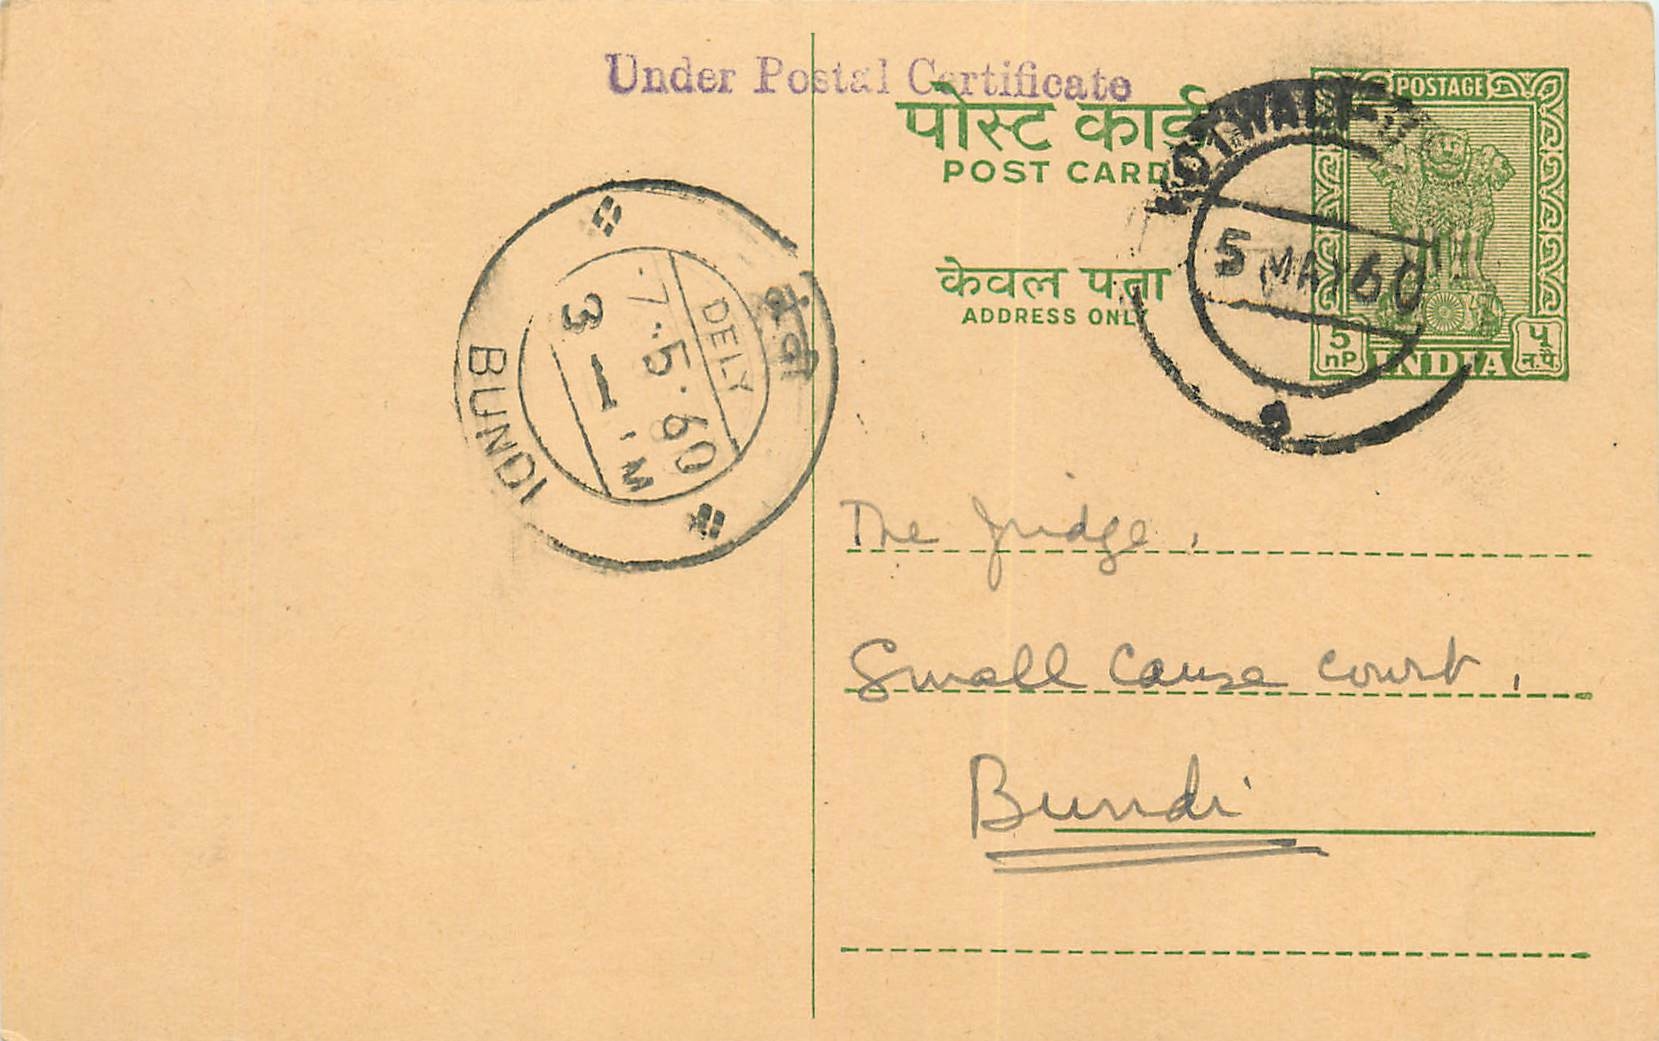 Under Postal Certificate
पोस्ट कार्ड
POST CARD
केवल पता
ADDRESS ONLY
POSTAGE
5
nP
INDIA
५
न.पै.
KOTWALI
5 MAY 60
BUNDI
DELY
7.5.60
3 1 M
The Judge,
Small Cause Court,
Bundi